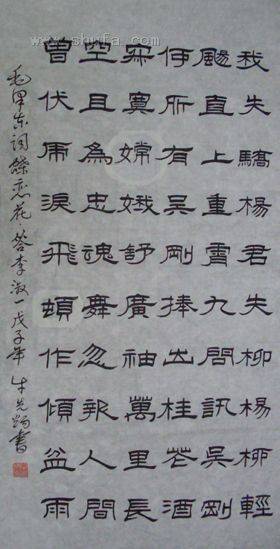 我失驕楊君失柳楊柳輕
颺直上重霄九問訊吳剛
何所有吳剛捧出桂花酒
寂寞嫦娥舒廣袖萬里長
空且為忠魂舞忽報人間
曾伏虎淚飛頓作傾盆雨
毛澤东词蝶恋花答李淑一戊子年牛先書